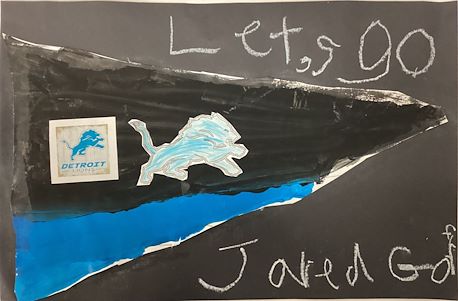 Let,s go
DETROIT
LIONS
Jared